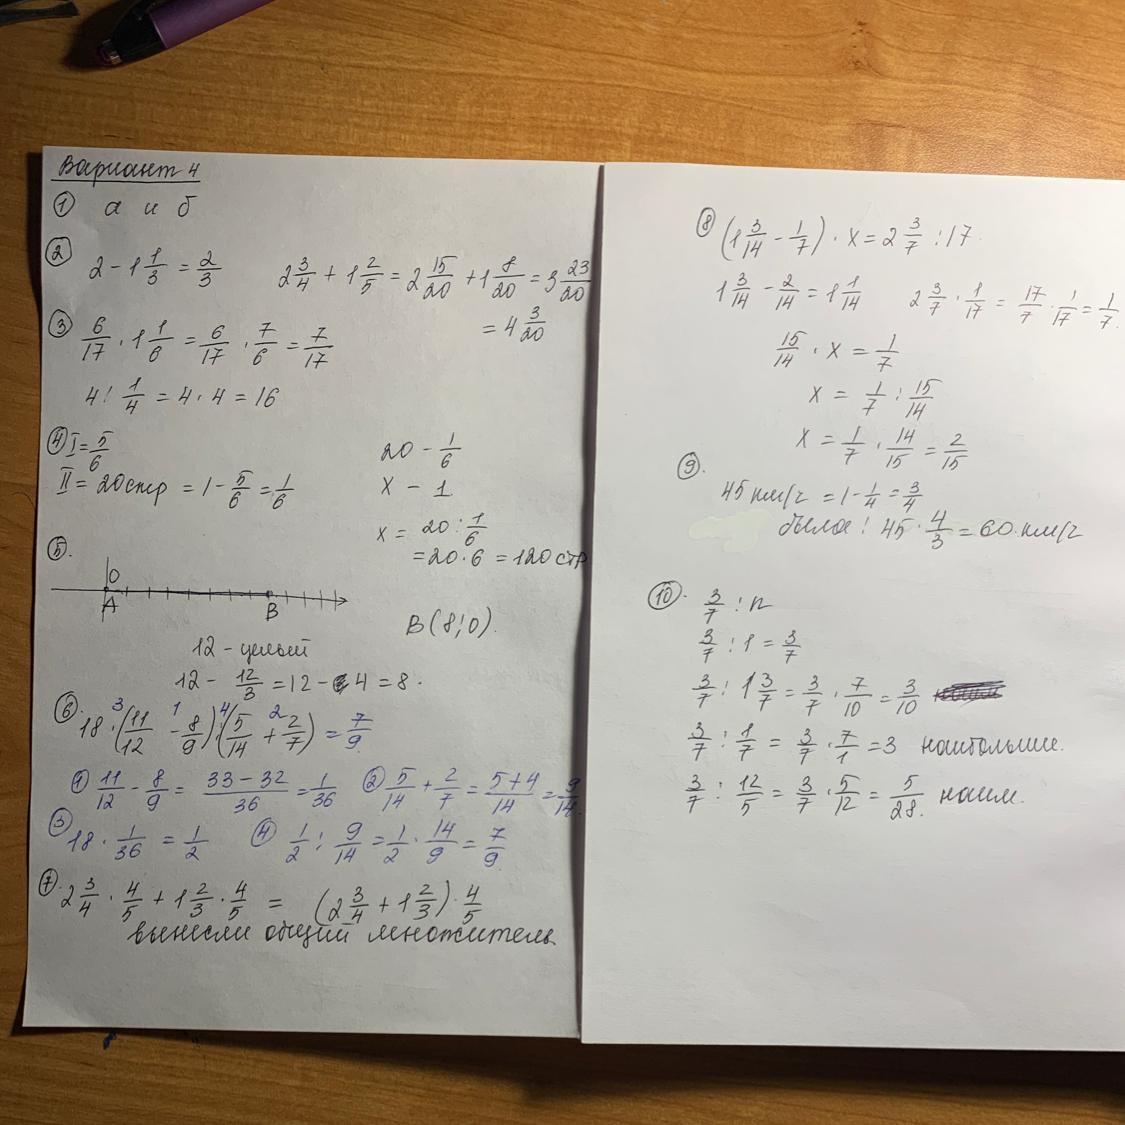 Вариант 4
① а и б
② 2 - 1 1/3 = 2/3   2 3/4 + 1 2/5 = 2 15/20 + 1 8/20 = 3 23/20
= 4 3/20
③ 6/17 · 1 1/6 = 6/17 · 7/6 = 7/17
4 : 1/4 = 4 · 4 = 16
④ I = 5/6
II = 20 стр = 1 - 5/6 = 1/6
20 - 1/6
x - 1
x = 20 : 1/6
= 20 · 6 = 120 стр
⑤.
0
A B
B (8;0).
12 - целый
12 - 12/3 = 12 - 4 = 8.
⑥. 3 1 4 2
18 · (11/12 - 8/9) : (5/14 + 2/7) = 7/9
① 11/12 - 8/9 = 33-32/36 = 1/36   ② 5/14 + 2/7 = 5+4/14 = 9/14.
③ 18 · 1/36 = 1/2   ④ 1/2 : 9/14 = 1/2 · 14/9 = 7/9
⑦. 2 3/4 · 4/5 + 1 2/3 · 4/5 = (2 3/4 + 1 2/3) · 4/5
вынесли общий множитель
⑧ (1 3/14 - 1/7) · x = 2 3/7 : 17.
1 3/14 - 2/14 = 1 1/14   2 3/7 · 1/17 = 17/7 · 1/17 = 1/7.
15/14 · x = 1/7
x = 1/7 : 15/14
x = 1/7 · 14/15 = 2/15
⑨.
45 км/ч = 1 - 1/4 = 3/4
была : 45 · 4/3 = 60 км/ч
⑩. 3/7 : n
3/7 : 1 = 3/7
3/7 : 1 3/7 = 3/7 · 7/10 = 3/10
3/7 : 1/7 = 3/7 · 7/1 = 3 наибольшие.
3/7 : 12/5 = 3/7 · 5/12 = 5/28. наим.